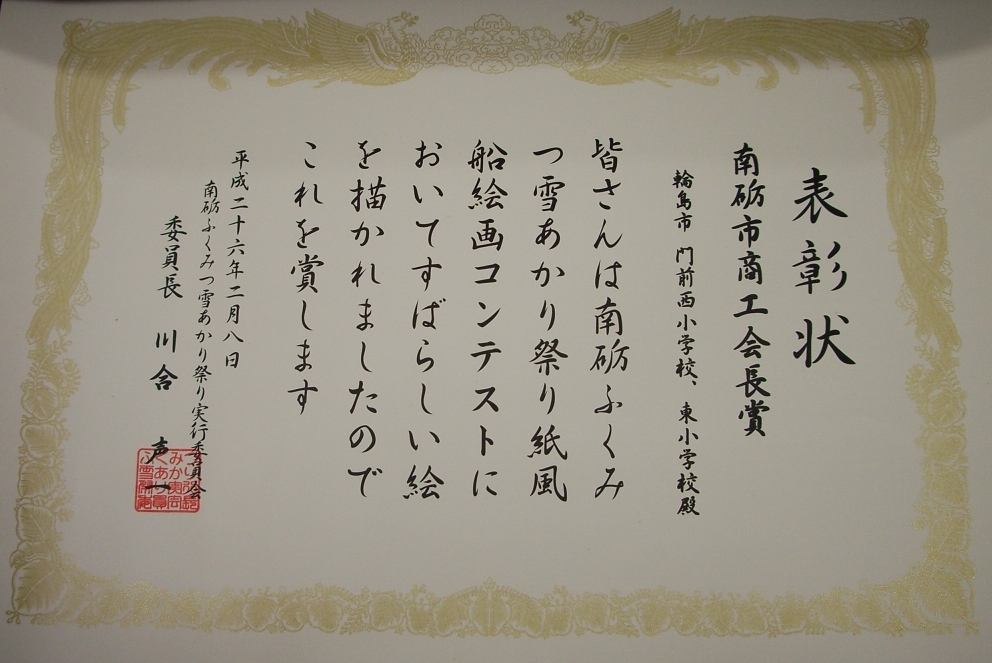 表彰状
南砺市商工会長賞
輪島市 門前西小学校、東小学校殿
皆さんは南砺ふくみ
つ雪あかり祭り紙風
船絵画コンテストに
おいてすばらしい絵
を描かれましたので
これを賞します
平成二十六年二月八日
南砺ふくみつ雪あかり祭り実行委員会
委員長 川合 声一